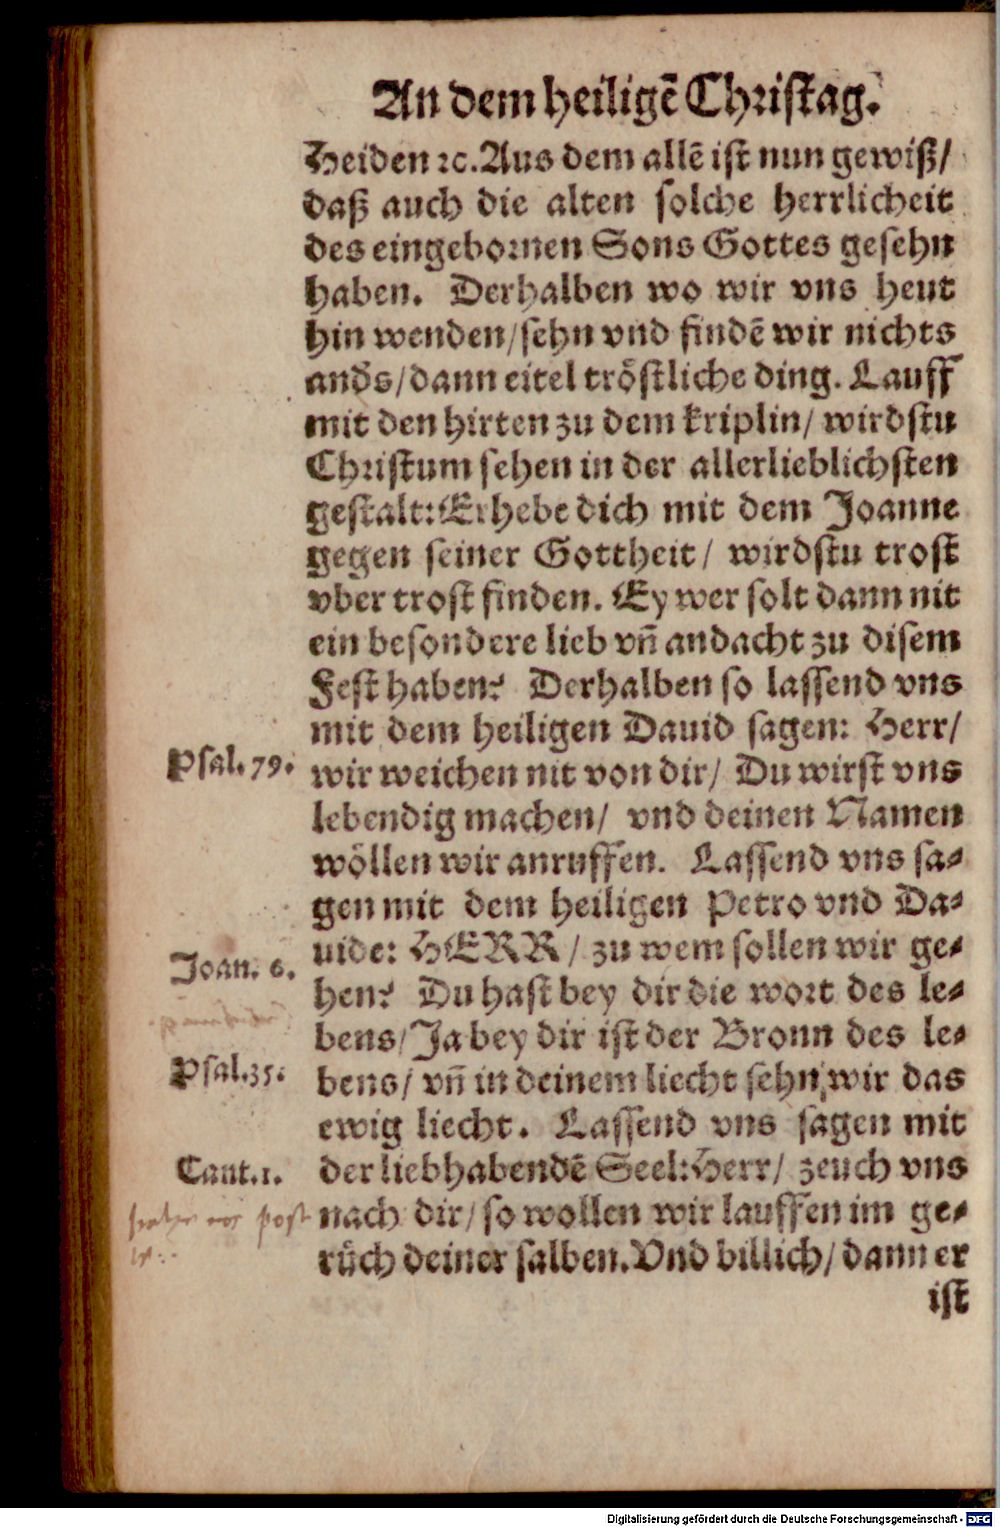 An dem heiligē Christag.
Heiden ꝛc. Aus dem allē ist nun gewiß/
daß auch die alten solche herrlicheit
des eingebornen Sons Gottes gesehn
haben. Derhalben wo wir vns heut
hin wenden/sehn vnd findē wir nichts
anďs/dann eitel tröstliche ding. Lauff
mit den hirten zu dem kriplin/ wirdstu
Christum sehen in der allerlieblichsten
gestalt: Erhebe dich mit dem Joanne
gegen seiner Gottheit/ wirdstu trost
vber trost finden. Ey wer solt dann nit
ein besondere lieb vñ andacht zu disem
Fest haben? Derhalben so lassend vns
mit dem heiligen Dauid sagen: Herr/
Psal. 79. wir weichen nit von dir/ Du wirst vns
lebendig machen/ vnd deinen Namen
wöllen wir anruffen. Lassend vns sa-
gen mit dem heiligen Petro vnd Da-
Joan. 6. uide: HERR/ zu wem sollen wir ge-
hen? Du hast bey dir die wort des le-
bens/Ja bey dir ist der Bronn des le-
Psal. 35. bens/ vñ in deinem liecht sehn wir das
ewig liecht. Lassend vns sagen mit
Cant. 1. der liebhabendē Seel: Herr/ zeuch vns
post nach dir/ so wollen wir lauffen im ge-
rüch deiner salben. Vnd billich/ dann er
ist
Digitalisierung gefördert durch die Deutsche Forschungsgemeinschaft - DFG